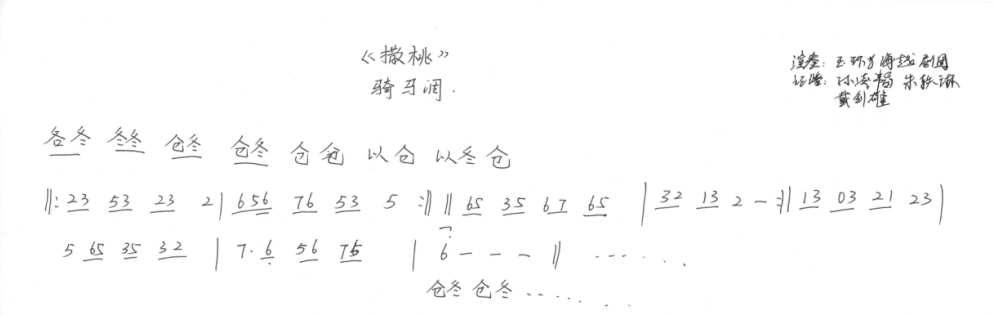 《撒桃》
骑马调.
演奏: 玉环方海越剧团
各冬 冬冬 仓冬 仓冬 仓 仓 以仓 以冬仓
‖: 23 53 23 2 | 656 76 53 5 :‖ ‖ 65 35 67 65 | 32 13 2 - :‖ 13 03 21 23 |
5 65 35 32 | 7·6 56 75 | 6 - - - ‖ ······
仓冬 仓冬 ······